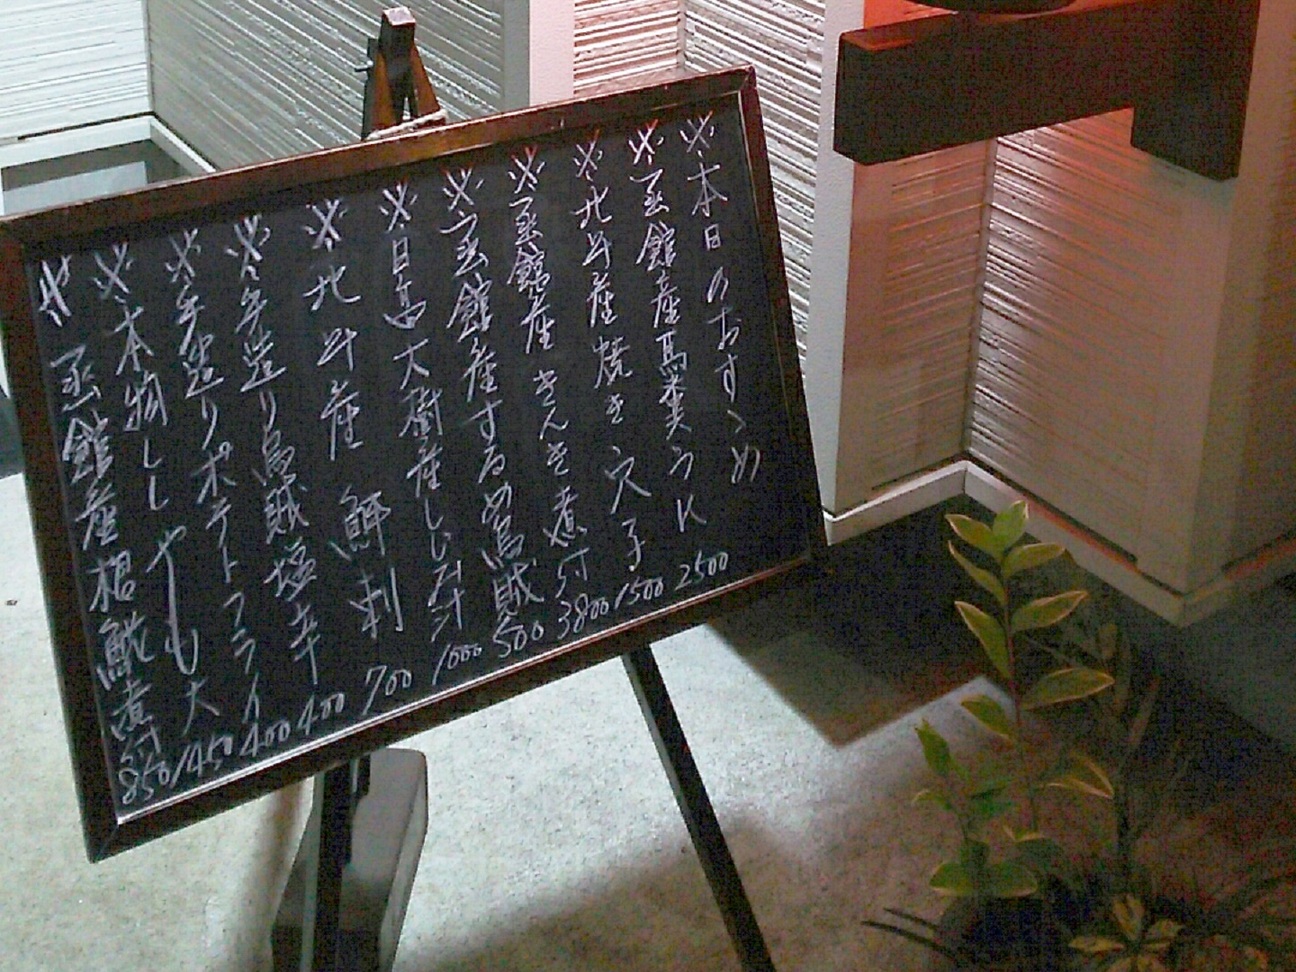 ※本日のおすゝめ
※函館産馬糞うに 2500
※北斗産焼き穴子 1500
※函館産 きんき煮付 3800
※函館産するめ烏賊 500
※日高大樹産しじみ汁 1000
※北斗産 鮮刺 700
※手造り烏賊塩辛 400
※手造りポテトフライ 400
※本物ししゃも 大 1450
※函館産 煮付 850